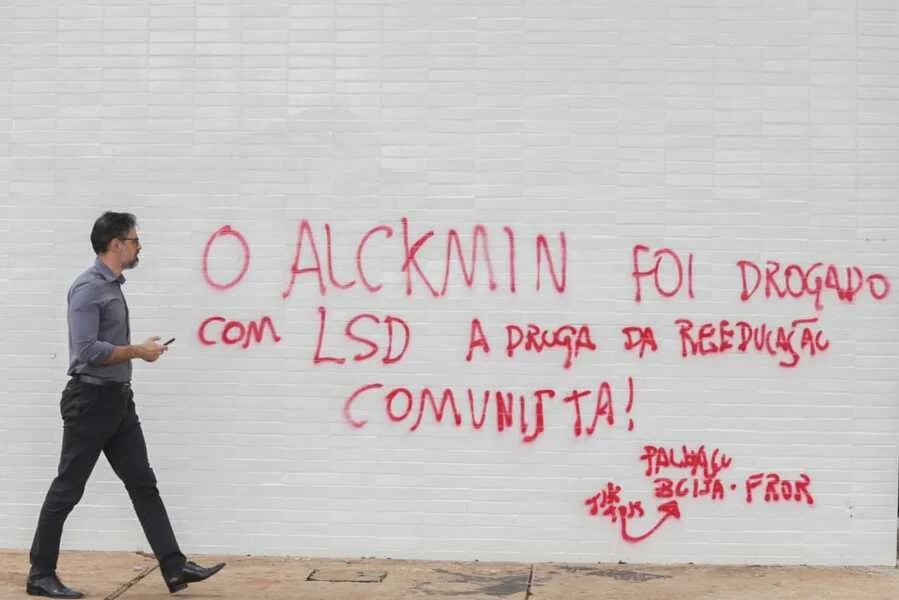 O ALCKMIN FOI DROGADO
COM LSD A DROGA DA REEDUCAÇÃO
COMUNISTA!
PALHAÇU
BEIJA-FROR
TIK
TOK